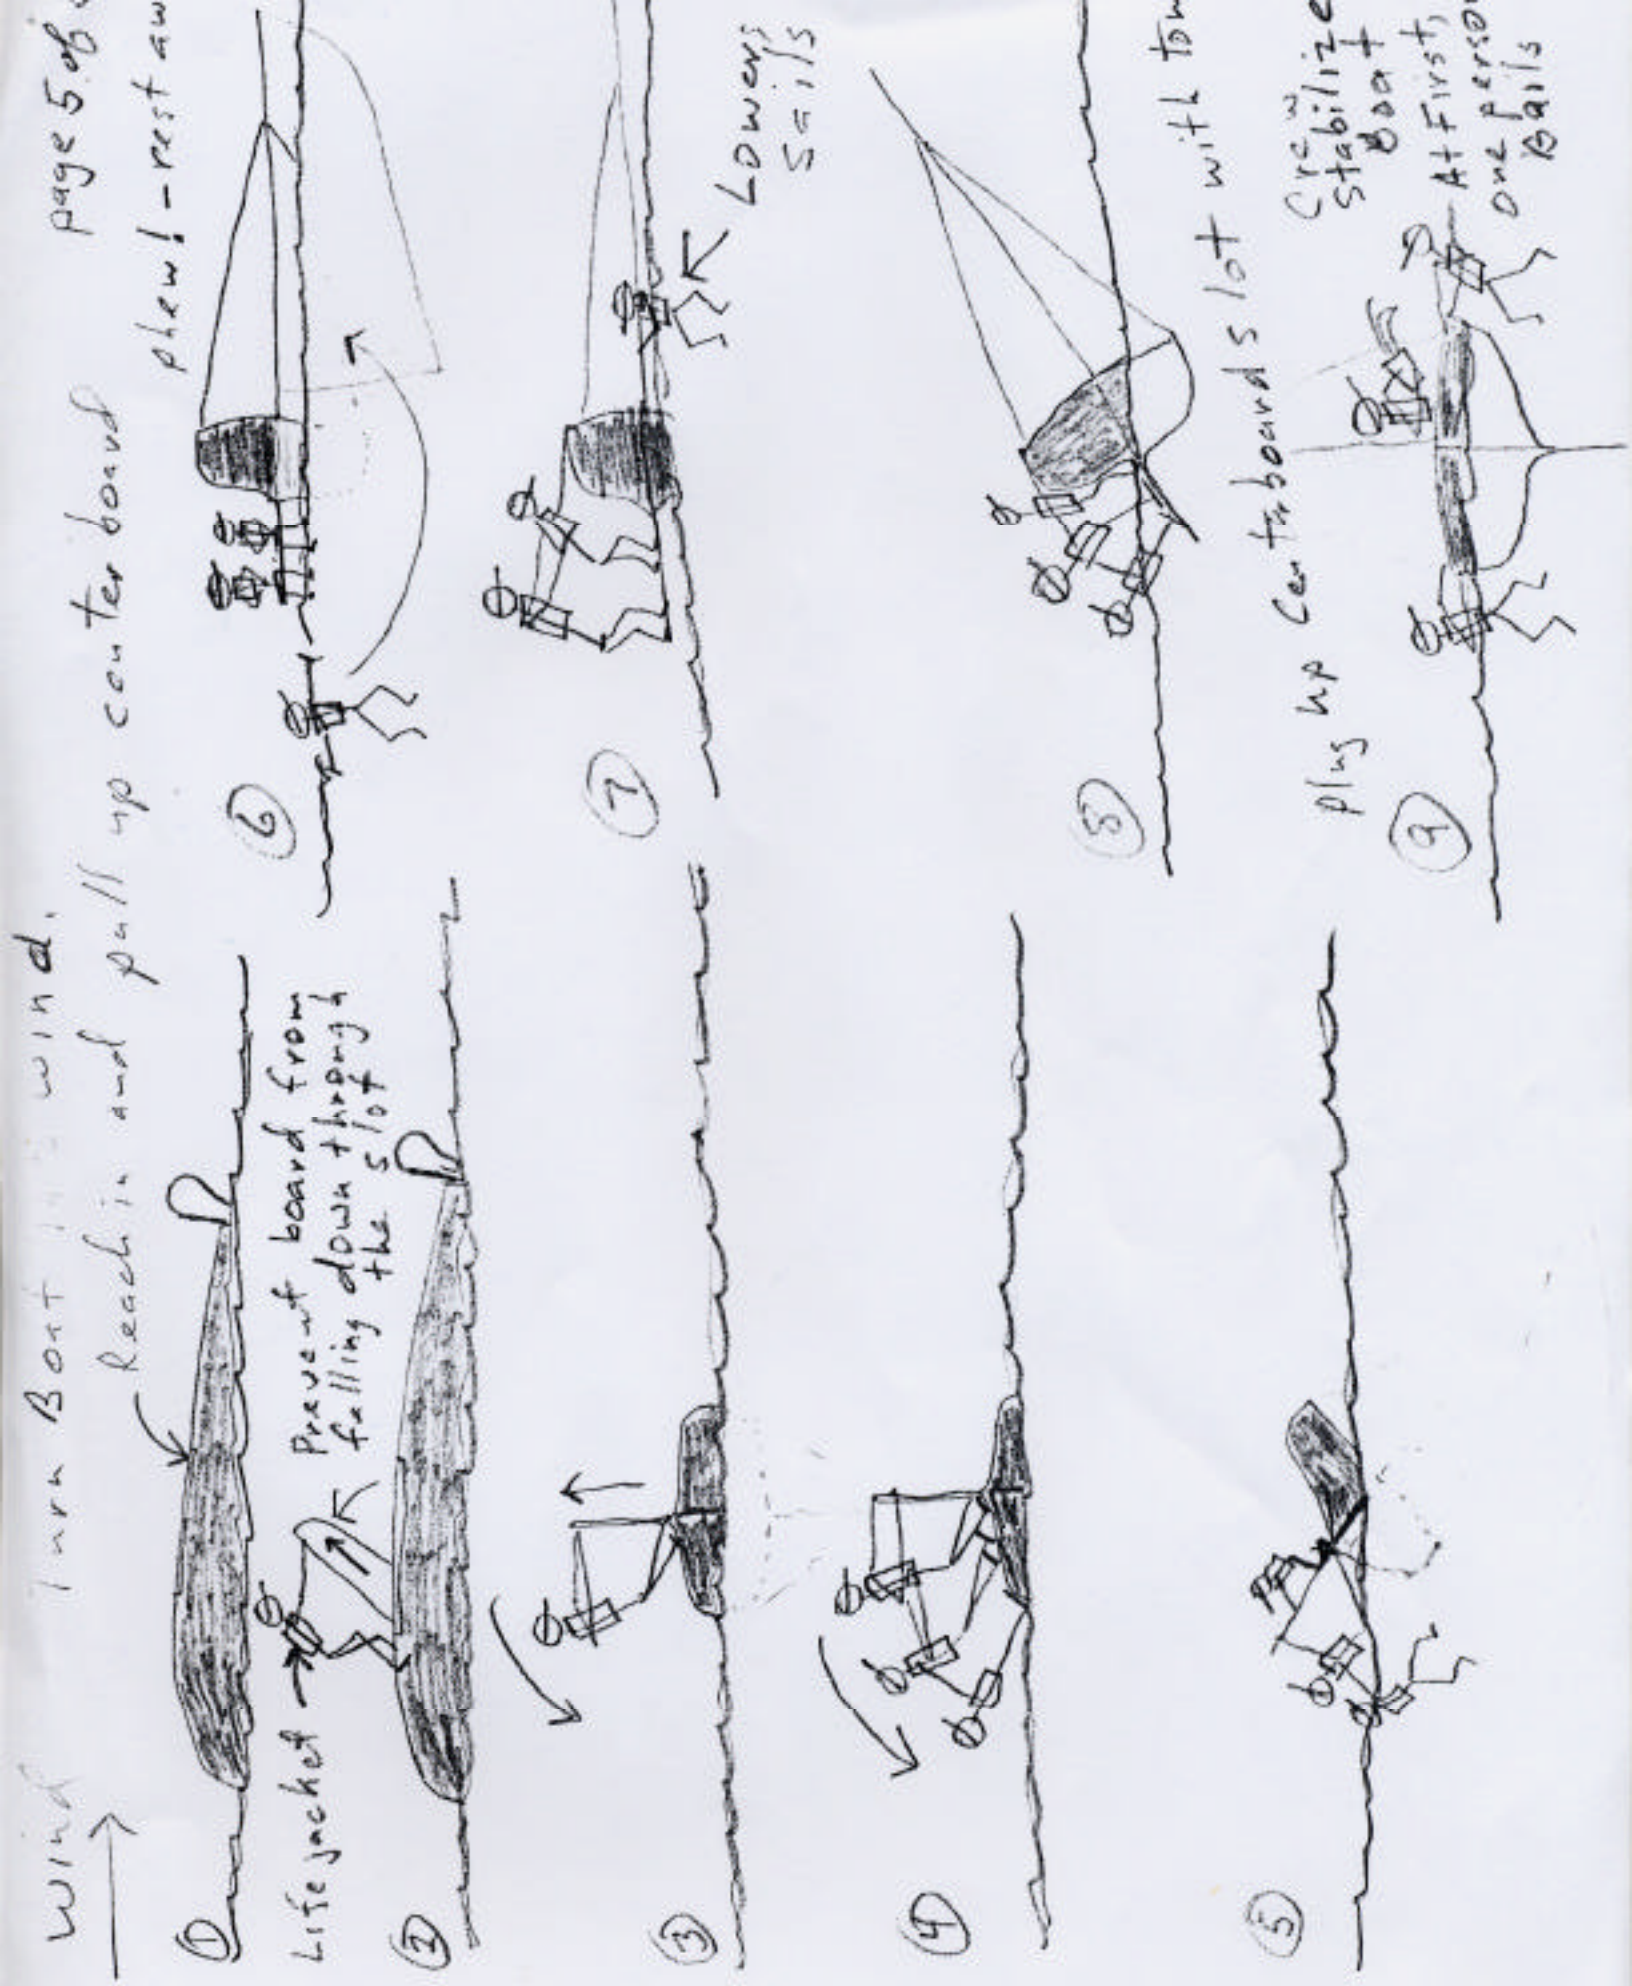 page 5 of
Wind
Turn Boat into wind.
Reach in and pull up center board
①
Life jacket
Prevent board from
falling down through
the slot
②
③
④
⑤
phew! - rest aw
⑥
⑦
Lowers
Sails
⑧
Plug up Centerboards slot with tow
⑨
Crew
Stabilize
Boat
At First,
one perso
Bails